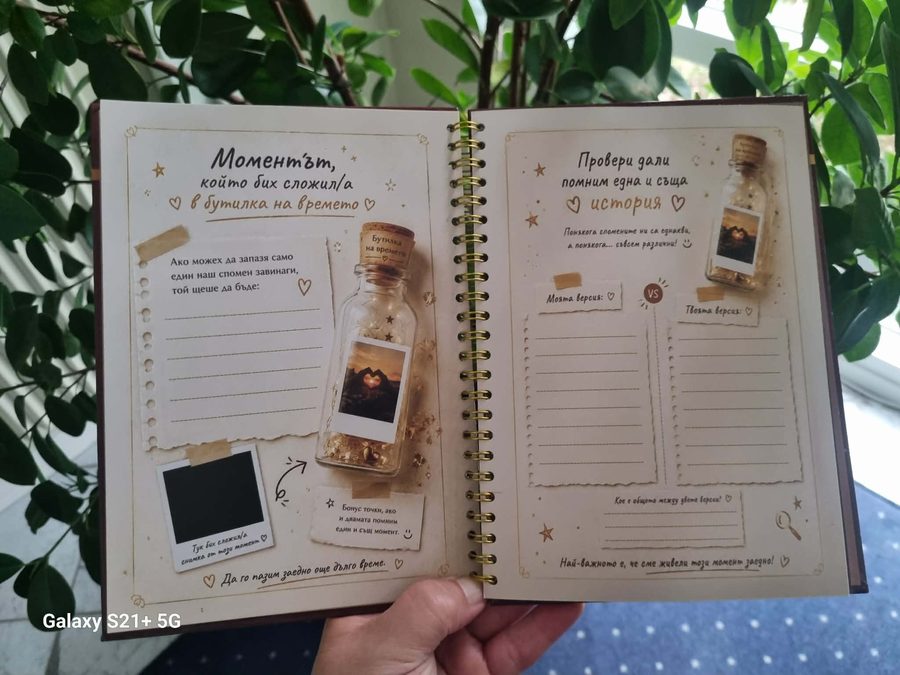 Моментът,
който бих сложил/а
в бутилка на времето
Ако можех да запазя само
един наш спомен завинаги,
той щеше да бъде:
Бутилка
на времето
Тук бих сложил/а
снимка от този момент
Бонус точки, ако
и двамата помним
един и същ момент.
Да го пазим заедно още дълго време.
Провери дали
помним една и съща
история
Понякога спомените ни са еднакви,
а понякога... съвсем различни!
Моята версия:
VS
Твоята версия:
Кое е общото между двете версии?
Най-важното е, че сме живели този момент заедно!
Galaxy S21+ 5G